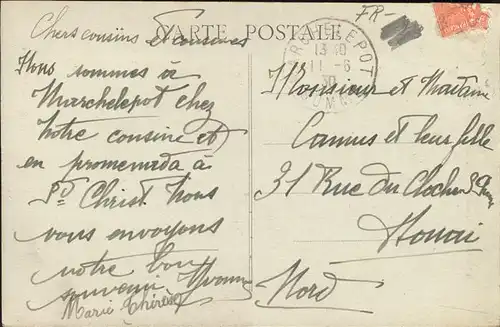 FR-
CARTE POSTALE
MARCHELEPOT
13 30
11-6
30
SOMME
Chers cousins et cousines
Nous sommes à
Marchelepot chez
notre cousine et
en promenade à
St Christ. Nous
vous envoyons
notre bon
souvenir Yvonne
Marie Thérèse
Monsieur et Madame
Camus et leur fille
31 Rue du Clocher St Pierre
Douai
Nord